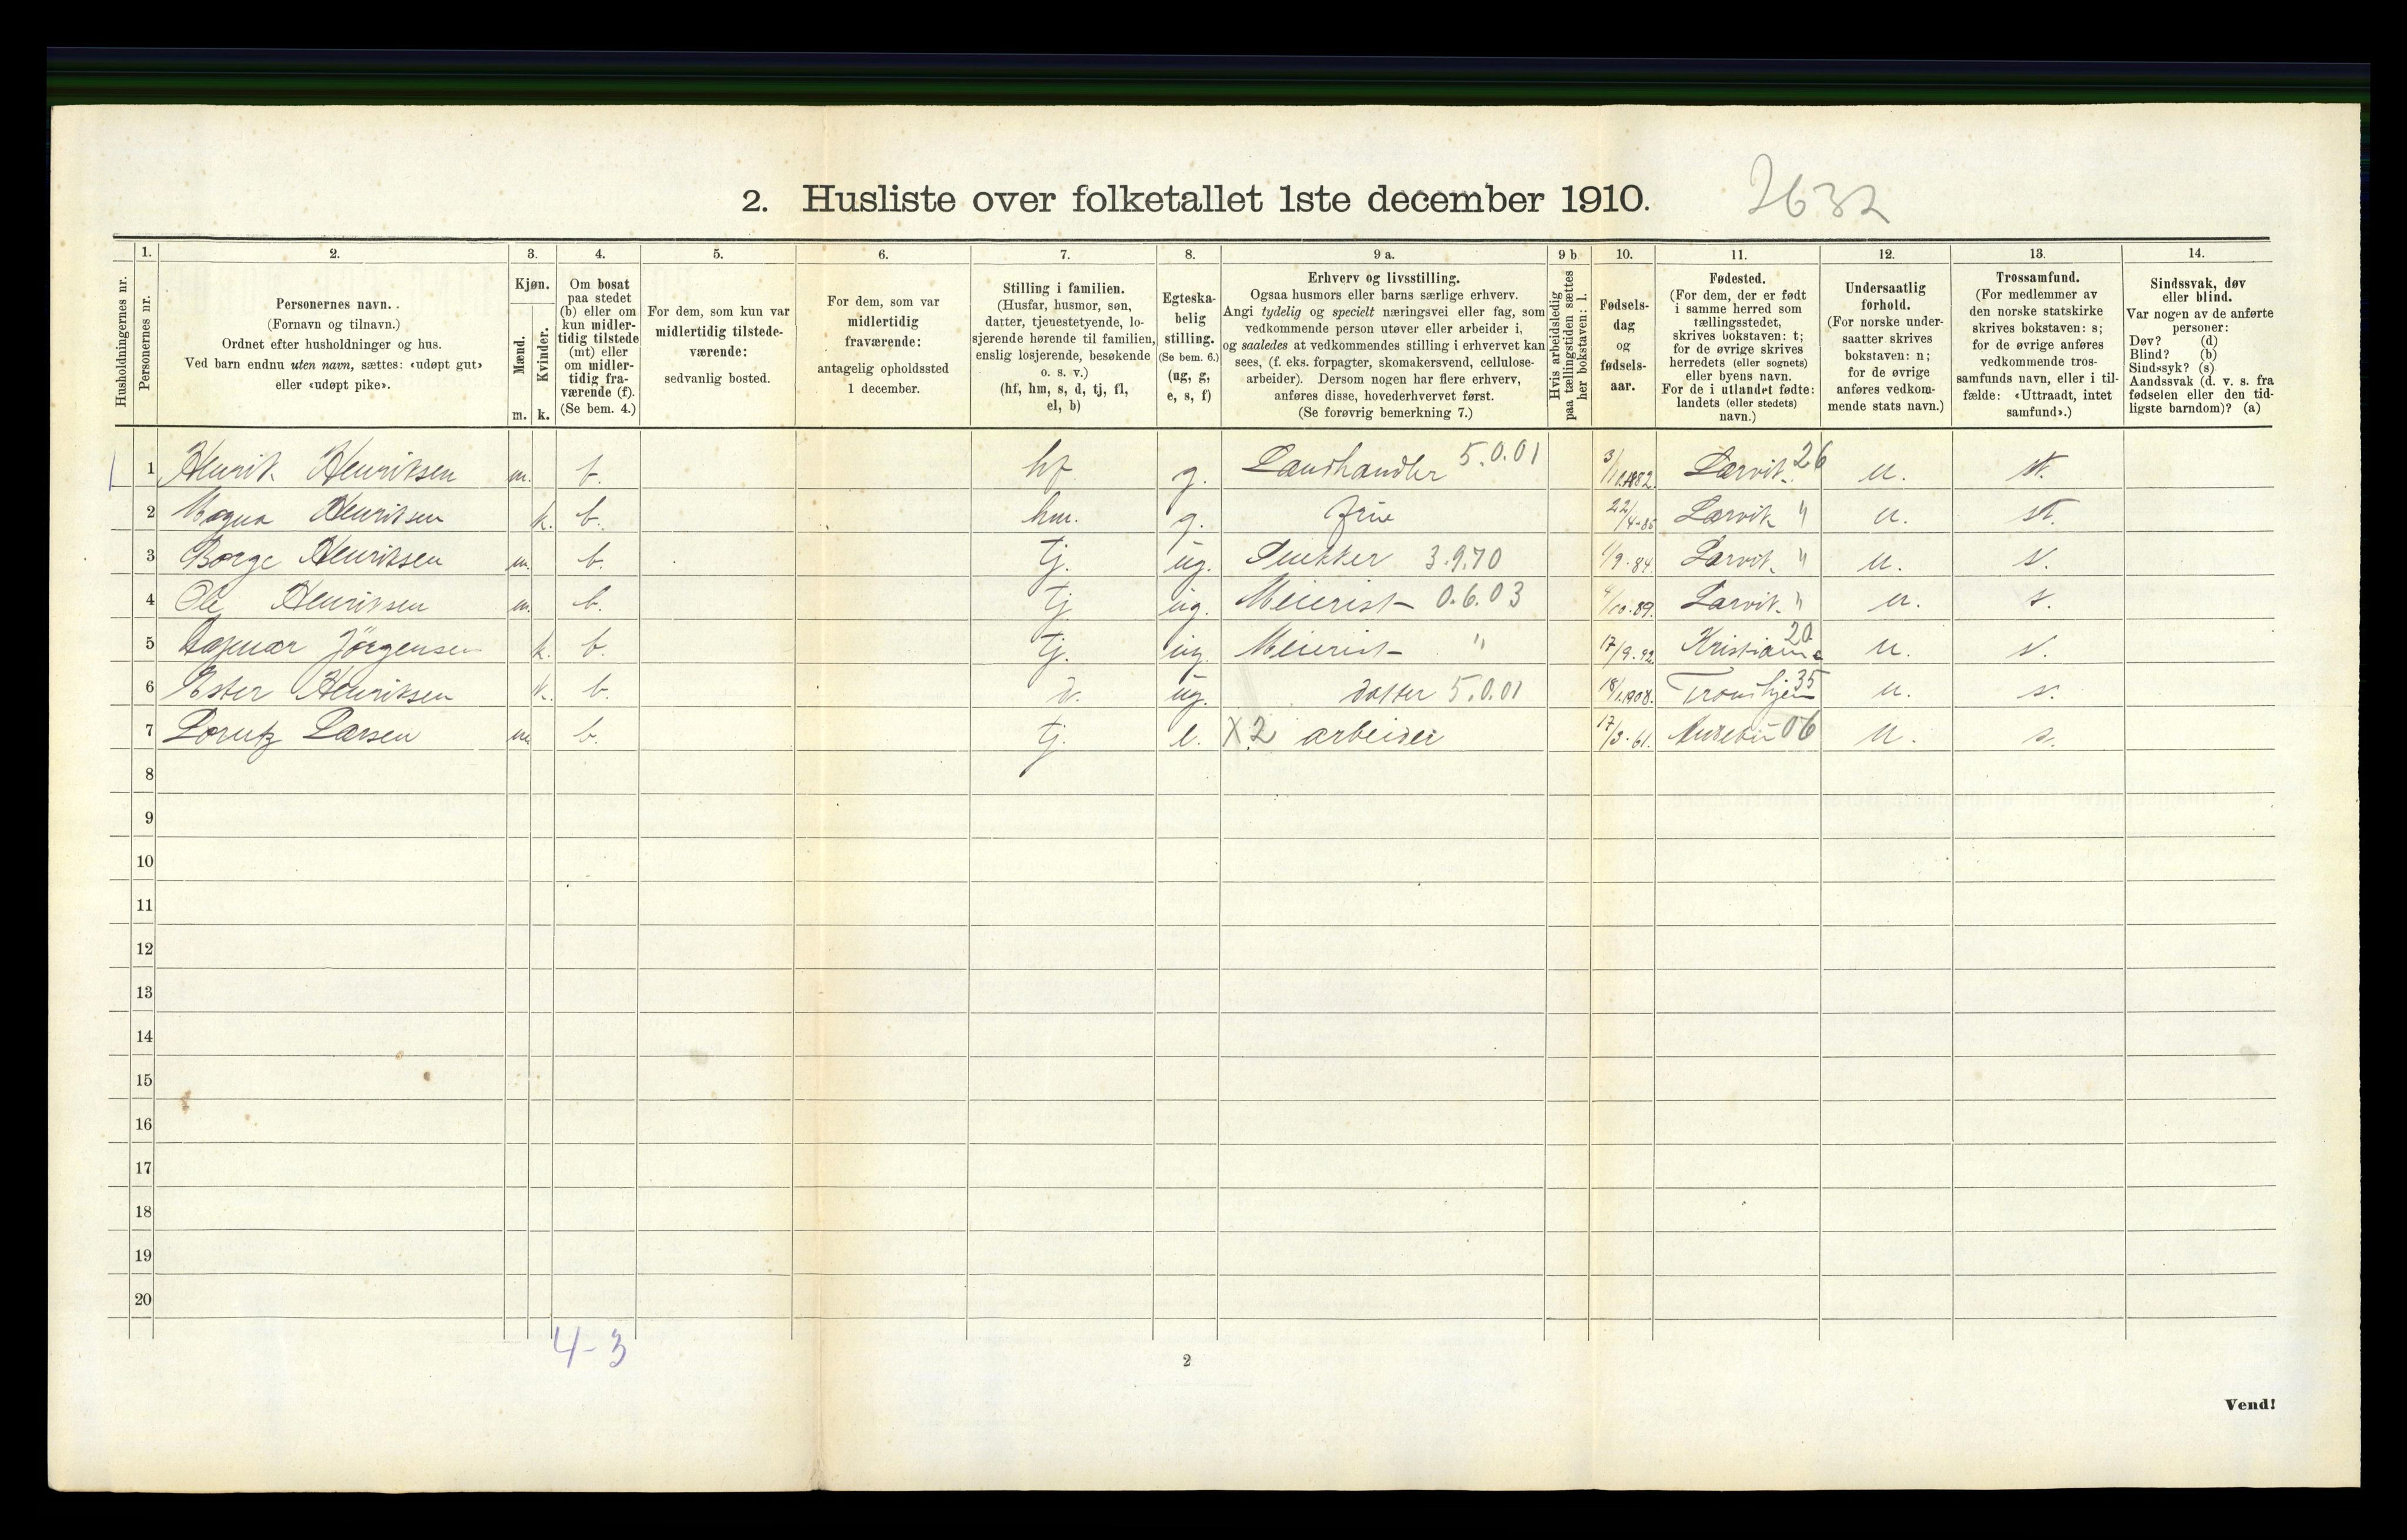 2. Husliste over folketallet 1ste december 1910. 2632
1. 2. 3. 4. 5. 6. 7. 8. 9 a. 9 b 10. 11. 12. 13. 14.
Husholdningernes nr.
Personernes nr.
Personernes navn.
(Fornavn og tilnavn.)
Ordnet efter husholdninger og hus.
Ved barn endnu uten navn, sættes: «udøpt gut»
eller «udøpt pike».
Kjøn.
Mænd.
Kvinder.
m. k.
Om bosat
paa stedet
(b) eller om
kun midler-
tidig tilstede
(mt) eller
om midler-
tidig fra-
værende (f).
(Se bem. 4.)
For dem, som kun var
midlertidig tilstede-
værende:
sedvanlig bosted.
For dem, som var
midlertidig
fraværende:
antagelig opholdssted
1 december.
Stilling i familien.
(Husfar, husmor, søn,
datter, tjenestetyende, lo-
sjerende hørende til familien,
enslig losjerende, besøkende
o. s. v.)
(hf, hm, s, d, tj, fl,
el, b)
Egteska-
belig
stilling.
(Se bem. 6.)
(ug, g,
e, s, f)
Erhverv og livsstilling.
Ogsaa husmors eller barns særlige erhverv.
Angi tydelig og specielt næringsvei eller fag, som
vedkommende person utøver eller arbeider i,
og saaledes at vedkommendes stilling i erhvervet kan
sees, (f. eks. forpagter, skomakersvend, cellulose-
arbeider). Dersom nogen har flere erhverv,
anføres disse, hovederhvervet først.
(Se forøvrig bemerkning 7.)
Hvis arbeidsledig
paa tællingstiden sættes
her bokstaven: l.
Fødsels-
dag
og
fødsels-
aar.
Fødested.
(For dem, der er født
i samme herred som
tællingsstedet,
skrives bokstaven: t;
for de øvrige skrives
herredets (eller sognets)
eller byens navn.
For de i utlandet fødte:
landets (eller stedets)
navn.)
Undersaatlig
forhold.
(For norske under-
saatter skrives
bokstaven: n;
for de øvrige
anføres vedkom-
mende stats navn.)
Trossamfund.
(For medlemmer av
den norske statskirke
skrives bokstaven: s;
for de øvrige anføres
vedkommende tros-
samfunds navn, eller i til-
fælde: «Uttraadt, intet
samfund».)
Sindssvak, døv
eller blind.
Var nogen av de anførte
personer:
Døv? (d)
Blind? (b)
Sindssyk? (s)
Aandssvak (d. v. s. fra
fødselen eller den tid-
ligste barndom)? (a)
1 Henrik Henriksen m. b. hf g. Landhandler 5.0.01 3/11.1882. Larvik. 26 n. st.
2 Magna Henriksen k. b. hm. g. frue 22/4-85 Larvik " n. st.
3 Borge Henriksen m. b. tj. ug. Snekker 3.9.70 1/9.84. Larvik " n. s.
4 Ole Henriksen m. b. tj ug. Meierist 0.6.03 /10.89. Larvik " n. s.
5 Dagmar Jörgensen k. b. tj. ug. Meierist " 17/9.92. Kristiania 20 n. s.
6 Ester Henriksen k. b. d. ug. datter 5.0.01 18/1.1908. Trondhjem 35 n. s.
7 Lorentz Larsen m b. tj. e. X2 arbeider 17/3.61. 06 n. s.
8
9
10
11
12
13
14
15
16
17
18
19
20
4-3
2
Vend!